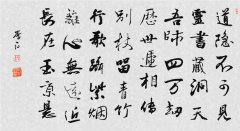 道隱不可見
靈書藏洞天
吾師四萬劫
歷世遞相傳
別杖留青竹
行歌躡紫煙
離心無遠近
長在玉京懸